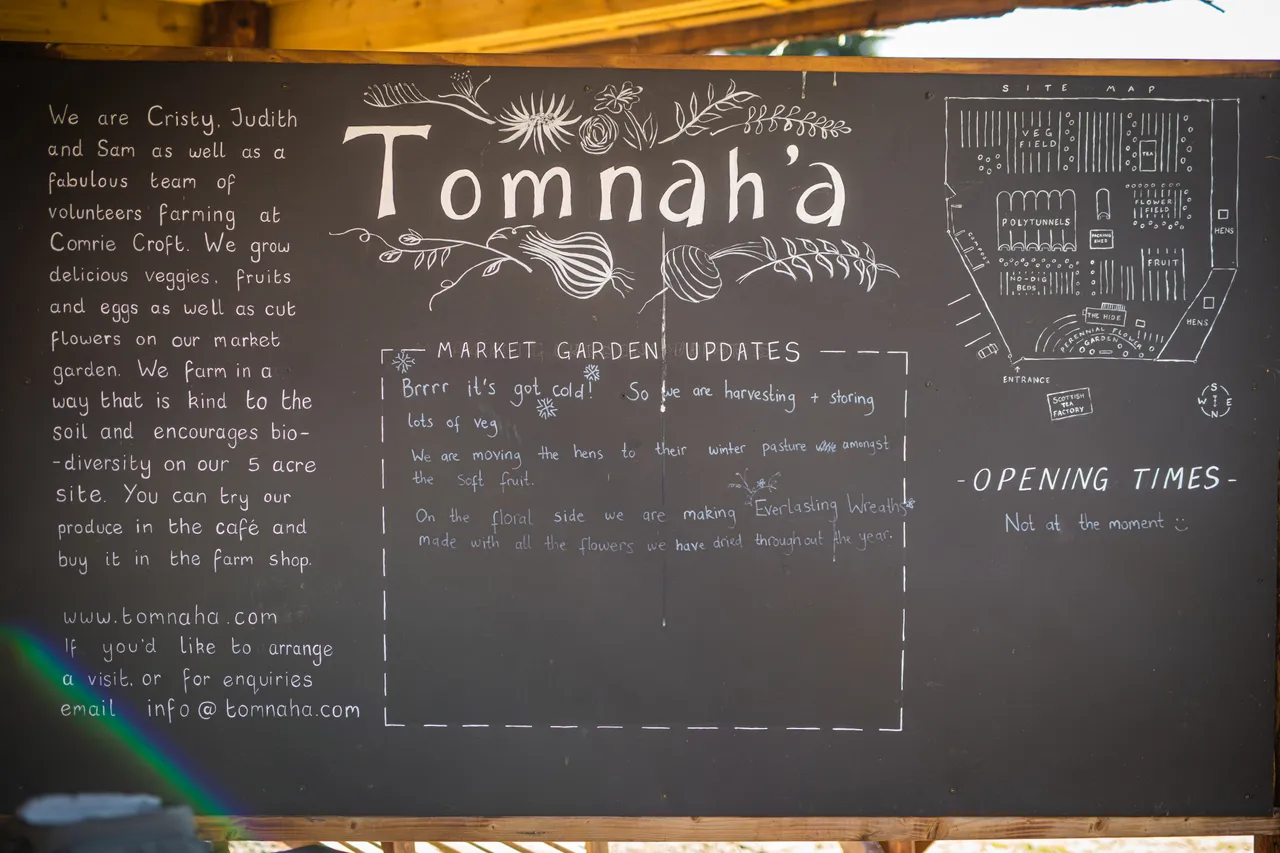 We are Cristy, Judith
and Sam as well as a
fabulous team of
volunteers farming at
Comrie Croft. We grow
delicious veggies, fruits
and eggs as well as cut
flowers on our market
garden. We farm in a
way that is kind to the
soil and encourages bio-
-diversity on our 5 acre
site. You can try our
produce in the café and
buy it in the farm shop.
www.tomnaha.com
If you'd like to arrange
a visit, or for enquiries
email info@tomnaha.com
Tomnah'a
MARKET GARDEN UPDATES
Brrrr it's got cold! So we are harvesting + storing
lots of veg
We are moving the hens to their winter pasture amongst
the soft fruit.
On the floral side we are making Everlasting Wreaths
made with all the flowers we have dried throughout the year.
SITE MAP
VEG
FIELD
TEA
POLYTUNNELS
FLOWER
FIELD
PACKING
SHED
HENS
COMPOST
NO-DIG
BEDS
FRUIT
THE HIDE
PERENNIAL FLOWER
GARDEN
HENS
ENTRANCE
SCOTTISH
TEA
FACTORY
S
W E
N
-OPENING TIMES-
Not at the moment